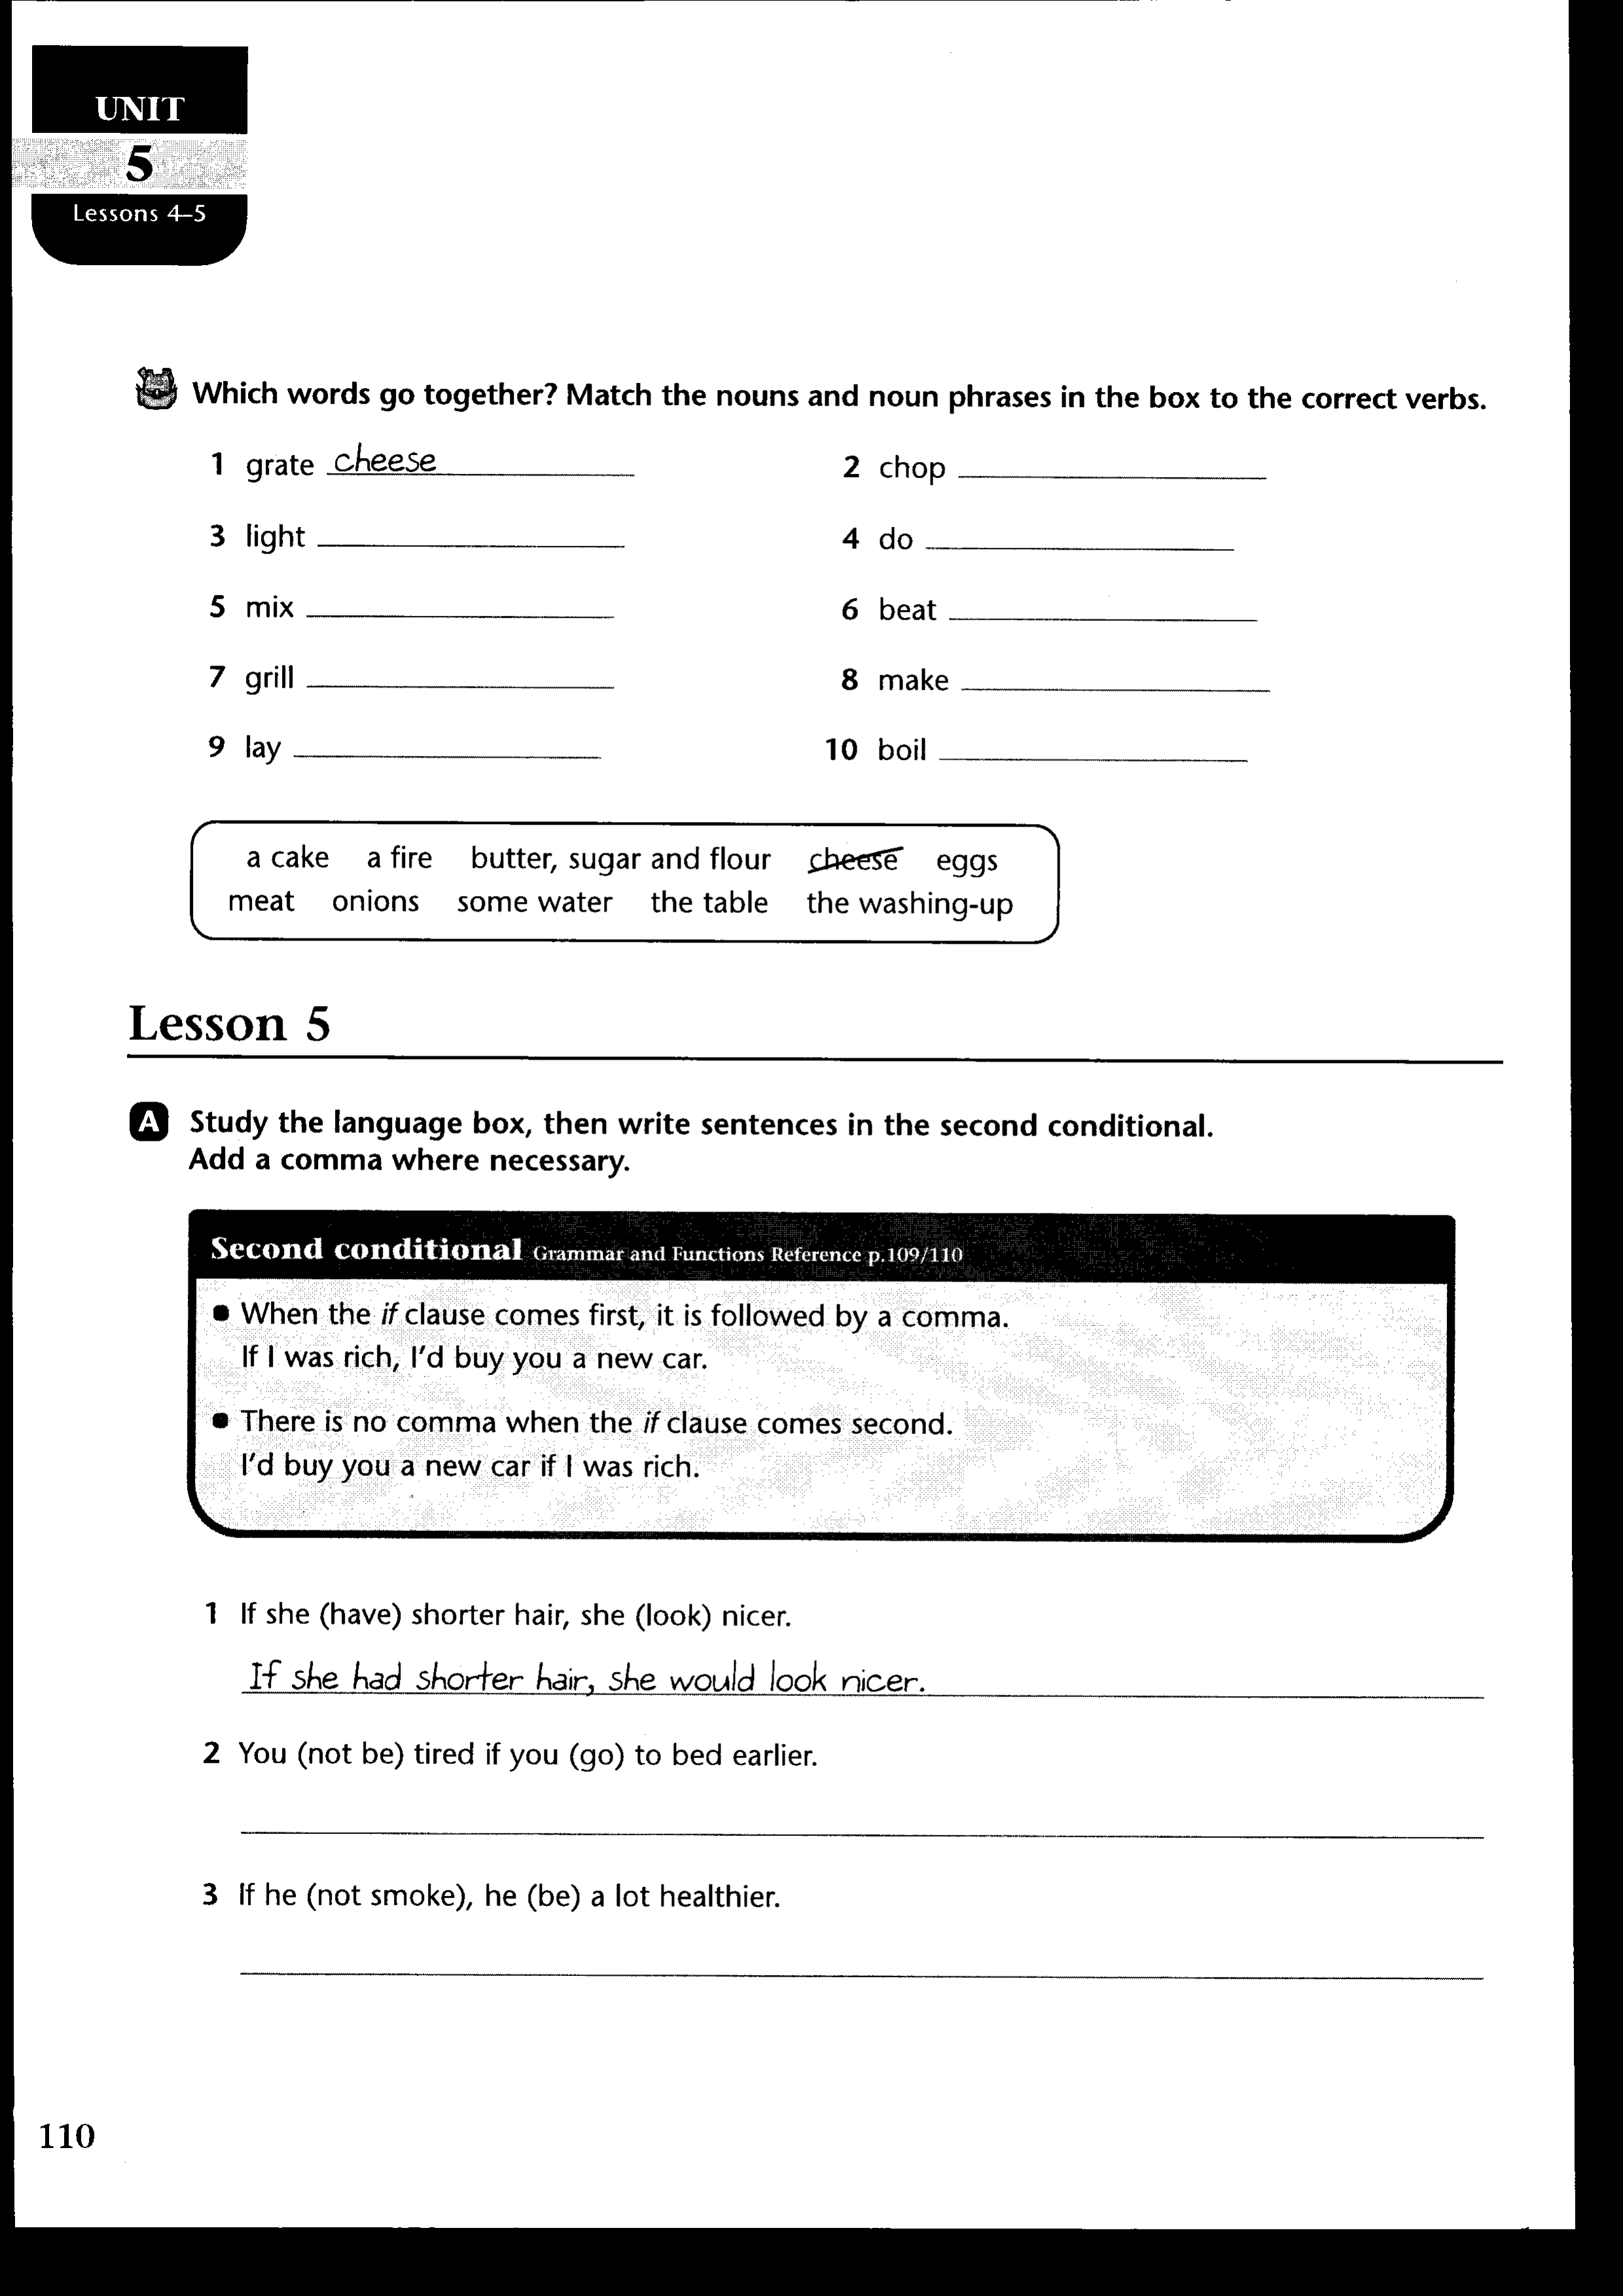 UNIT
5
Lessons 4–5
Which words go together? Match the nouns and noun phrases in the box to the correct verbs.
1 grate cheese
2 chop
3 light
4 do
5 mix
6 beat
7 grill
8 make
9 lay
10 boil
a cake a fire butter, sugar and flour cheese eggs
meat onions some water the table the washing-up
Lesson 5
A Study the language box, then write sentences in the second conditional.
Add a comma where necessary.
Second conditional Grammar and Functions Reference p.109/110
• When the if clause comes first, it is followed by a comma.
If I was rich, I'd buy you a new car.
• There is no comma when the if clause comes second.
I'd buy you a new car if I was rich.
1 If she (have) shorter hair, she (look) nicer.
If she had shorter hair, she would look nicer.
2 You (not be) tired if you (go) to bed earlier.
3 If he (not smoke), he (be) a lot healthier.
110